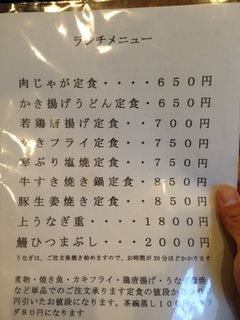 ランチメニュー
肉じゃが定食・・・・６５０円
かき揚げうどん定食・６５０円
若鶏唐揚げ定食・・・７００円
かきフライ定食・・・７５０円
寒ぶり塩焼定食・・・７５０円
牛すき焼き鍋定食・・８５０円
豚生姜焼き定食・・・８５０円
上うなぎ重・・・・１８００円
鰻ひつまぶし・・・２０００円
うなぎは、ご注文後焼き始めますので、お時間が20分ほどかかります
煮物・焼き魚・カキフライ・鶏唐揚・うな
など単品でのご注文承ります定食の値段から
円引いたお値段になります。茶碗蒸し１００円
ダ８０円になります